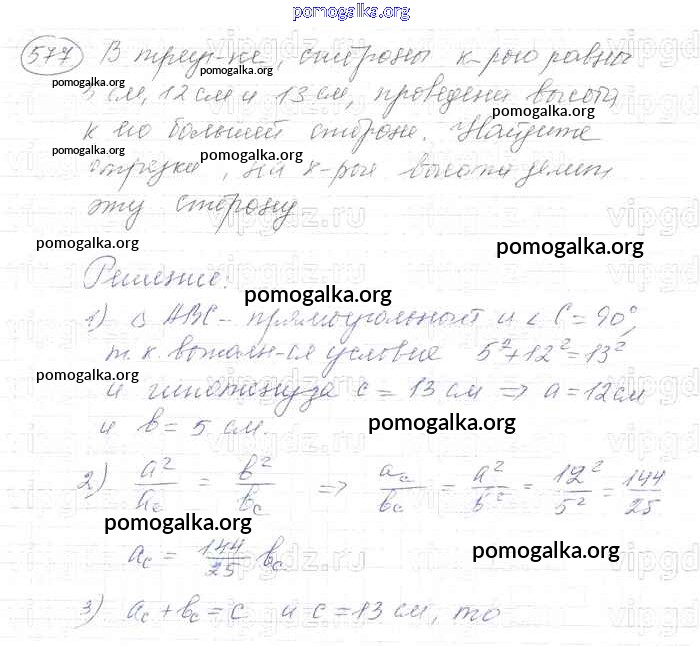 pomogalka.org
577 В треуг-ке, стороны к-рого равны
pomogalka.org pomogalka.org
5 см, 12 см и 13 см, проведена высота
pomogalka.org
к его большей стороне. Найдите
pomogalka.org pomogalka.org
отрезки, на к-рые высота делит
эту сторону
pomogalka.org pomogalka.org
Решение:
pomogalka.org
1) Δ ABC - прямоугольный и ∠ C = 90°,
т. к. выполн-ся условие 5² + 12² = 13²
pomogalka.org
и гипотенуза c = 13 см ⇒ a = 12 см
и b = 5 см.
pomogalka.org
2) a²/a_c = b²/b_c ⇒ a_c/b_c = a²/b² = 12²/5² = 144/25
pomogalka.org
a_c = 144/25 b_c
pomogalka.org
3) a_c + b_c = c и c = 13 см, то
pomogalka.org